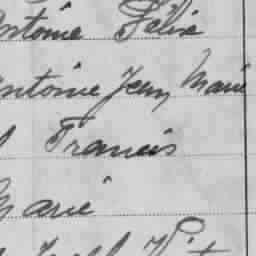 Antoine Félix
Antoine Jean Marie
Francis
Marie